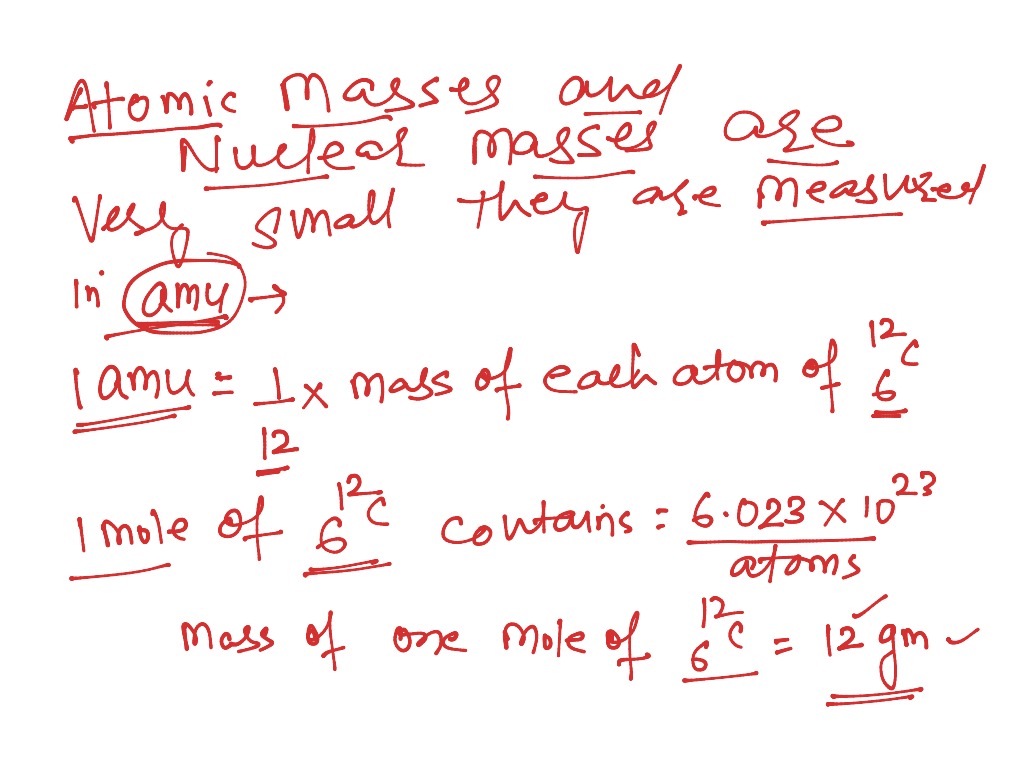 Atomic Masses and
Nuclear masses are
Very small they are measured
in amu →
1 amu = 1/12 x mass of each atom of ¹²₆C
1 mole of ¹²₆C contains = 6.023 x 10²³
atoms
Mass of one mole of ¹²₆C = 12 gm